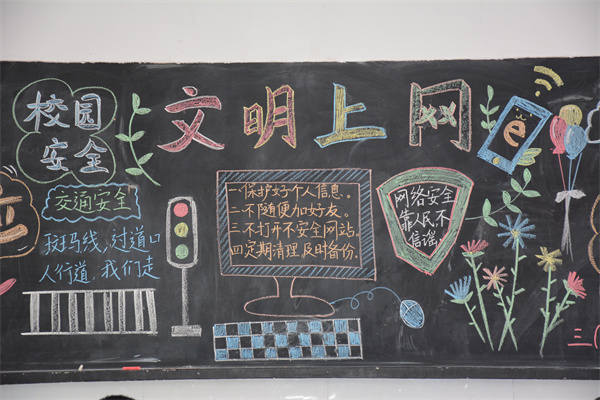 校园
安全
文明上网
e
交通安全
斑马线,过道口
人行道,我们走
一.保护好个人信息。
二.不随便加好友。
三.不打开不安全网站。
四.定期清理及时备份。
网络安全
靠人民,不
信谣。
三(